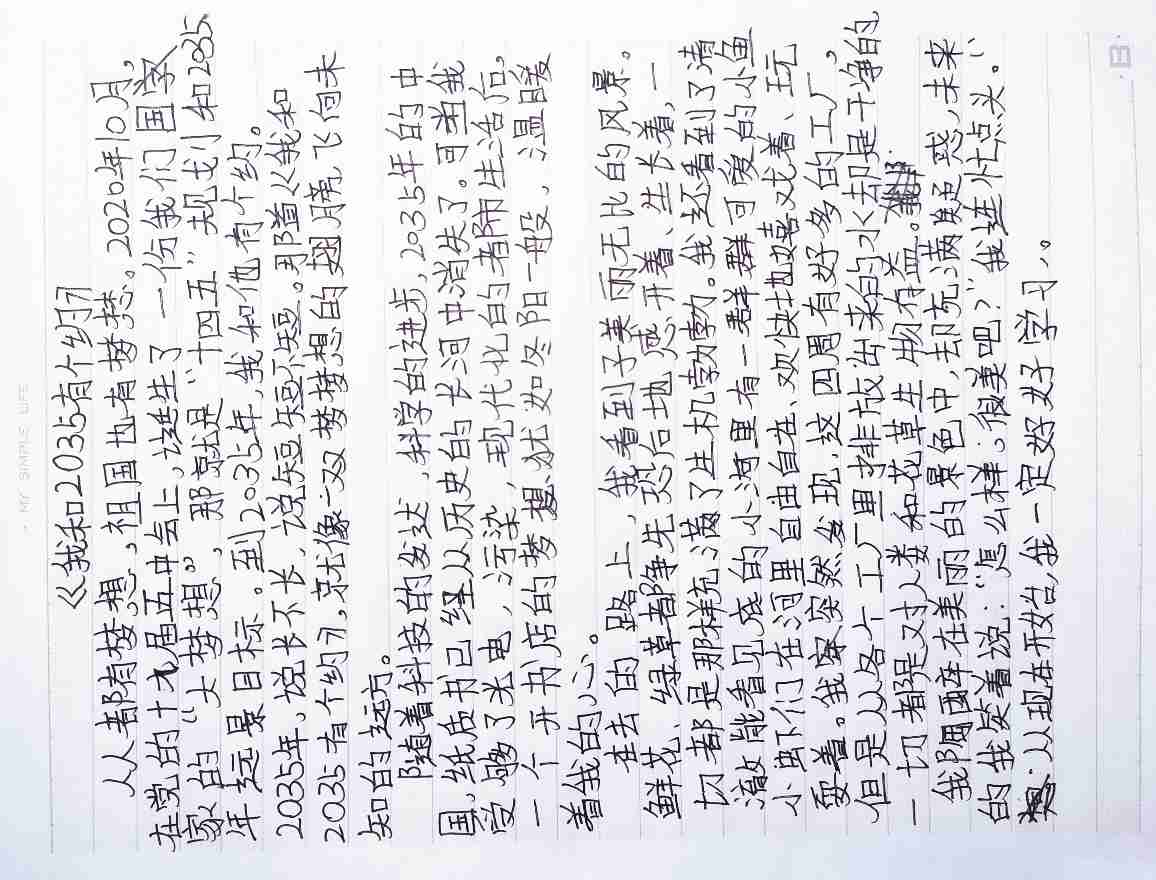 MY SIMPLE LIFE
《我和2035有个约》
人人都有梦想，祖国也有梦想。2020年10月，
在党的十九届五中会上，诞生了一份我们国家
家的“大梦想”，那就是“十四五”规划和2035
年远景目标。到2035年，我和他有个约。
2035年，说长不长，说短短不短。那道《我和
2035有个约》，就像一双梦想的翅膀，飞向未
知的远方。
随着科技的发达，科学的进步，2035年的中
国，纸质书已经从历史的长河中消失了。可当我
受够了米电，污染，现代化的都市生活后，
一个开书店的梦想，犹如冬阳一般，温暖
着我的心。
在去的路上，我看到了美丽无比的风景。
鲜花、绿草都争先恐后地盛开着、生长着，一
切都是那样充满了生机勃勃。我还看到了清
澈能看见底的小河里有一群群可爱的小鱼
小虾们在河里自由自在、欢快地嬉戏着、玩
耍着。我突然发现，这四周有好多的工厂，
但是从各个工厂里排放出来的水却是干净的
一切都是对人类和花草生物有益。
我陶醉在美丽的景色中，却充满疑惑，未来
的我笑着说：“怎么样，很美吧？”我连忙点头。“
从现在开始，我一定好好学习，。